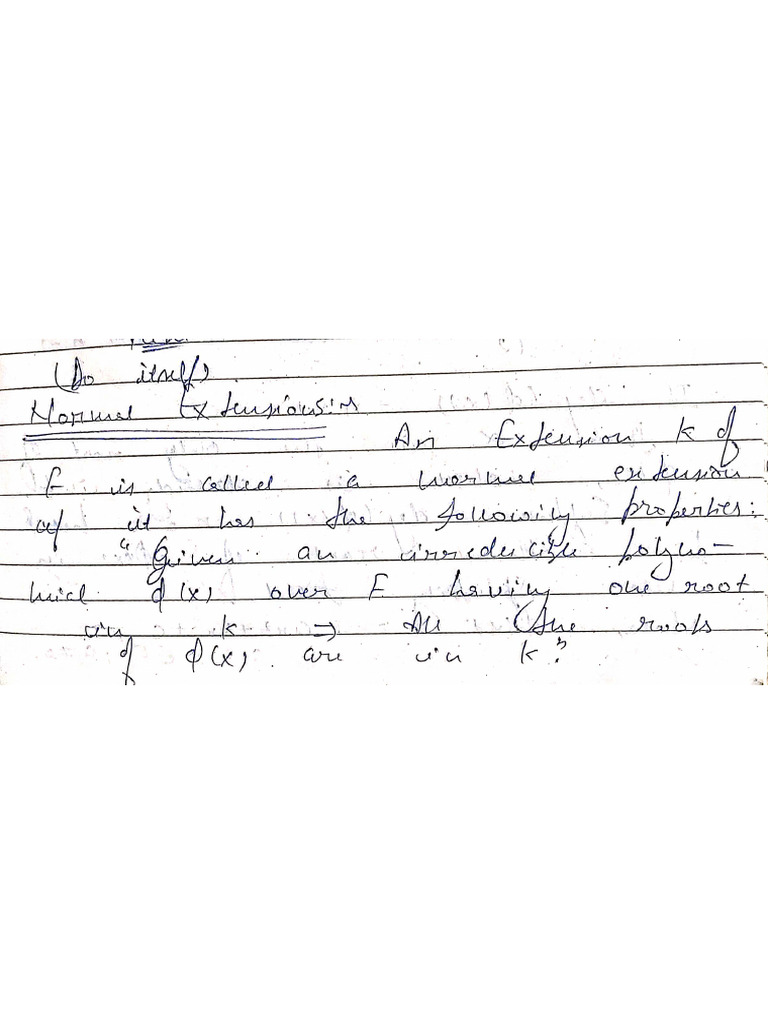 (Do itself)
Normal Extensions:-
An Extension K of
F is called a normal extension
if it has the following properties:
"Given an irreducible polyno-
mial φ(x) over F having one root
in K ⇒ All the roots
of φ(x) are in K."